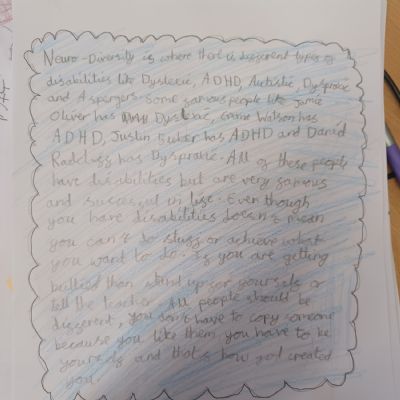 Neuro-Diversity is where that is different types of
disabilities like Dyslexic, ADHD, Autistic, Dyspraxic
and Aspergers. Some famous people like Jamie
Oliver has Dyslexic, Emma Watson has
ADHD, Justin Bieber has ADHD and Daniel
Radcliff has Dyspraxic. All of these people
have disabilities but are very famous
and succesful in life. Even though
you have disabilities doesn't mean
you can't do stuff or achieve what
you want to do. If you are getting
bullied then stand up for yourself or
tell the teacher. All people should be
different, you don't have to copy someone
because you like them you have to be
yourself and that's how god created
you.